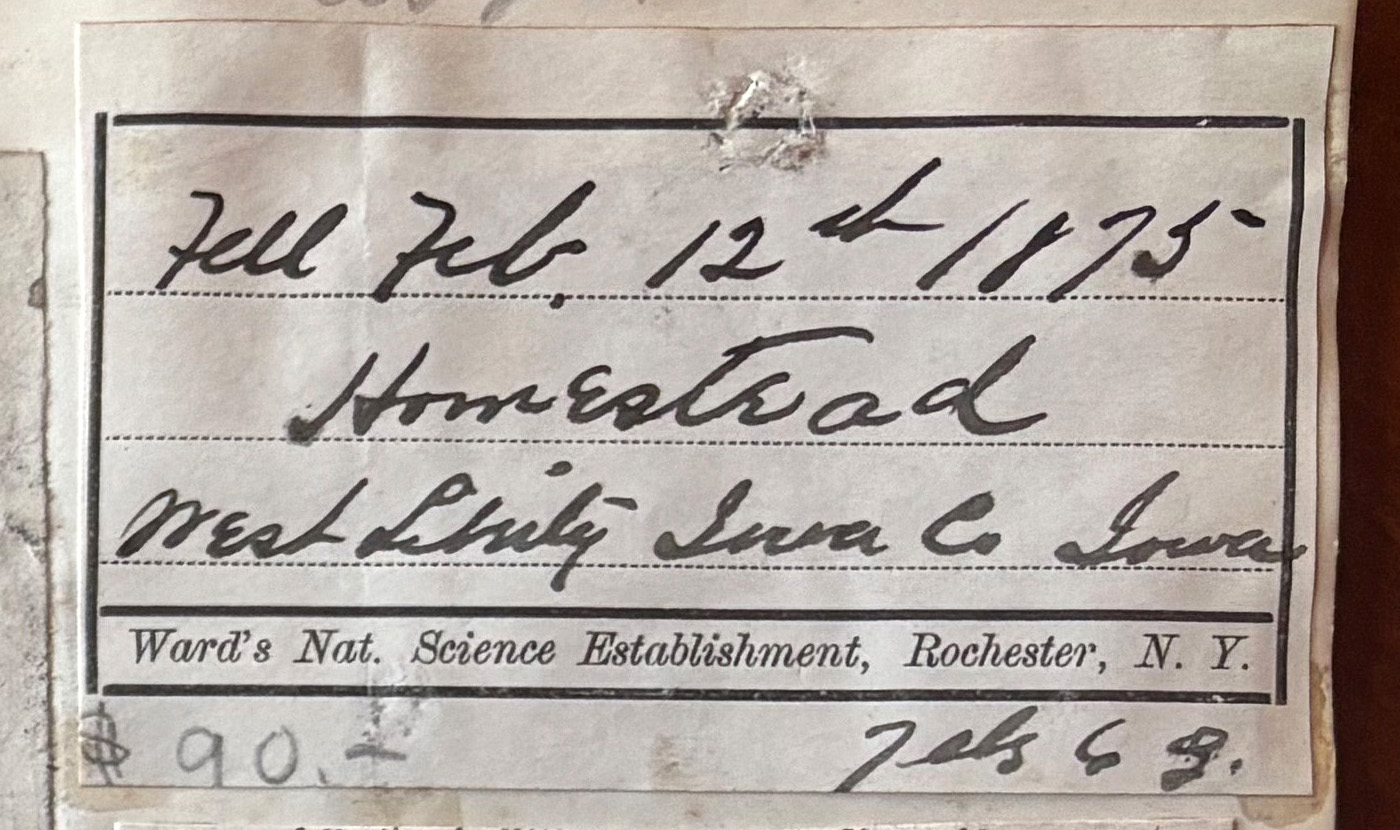 Fell Feb. 12th 1875
Homestead
West Liberty Iowa Co Iowa
Ward's Nat. Science Establishment, Rochester, N. Y.
$ 90.-